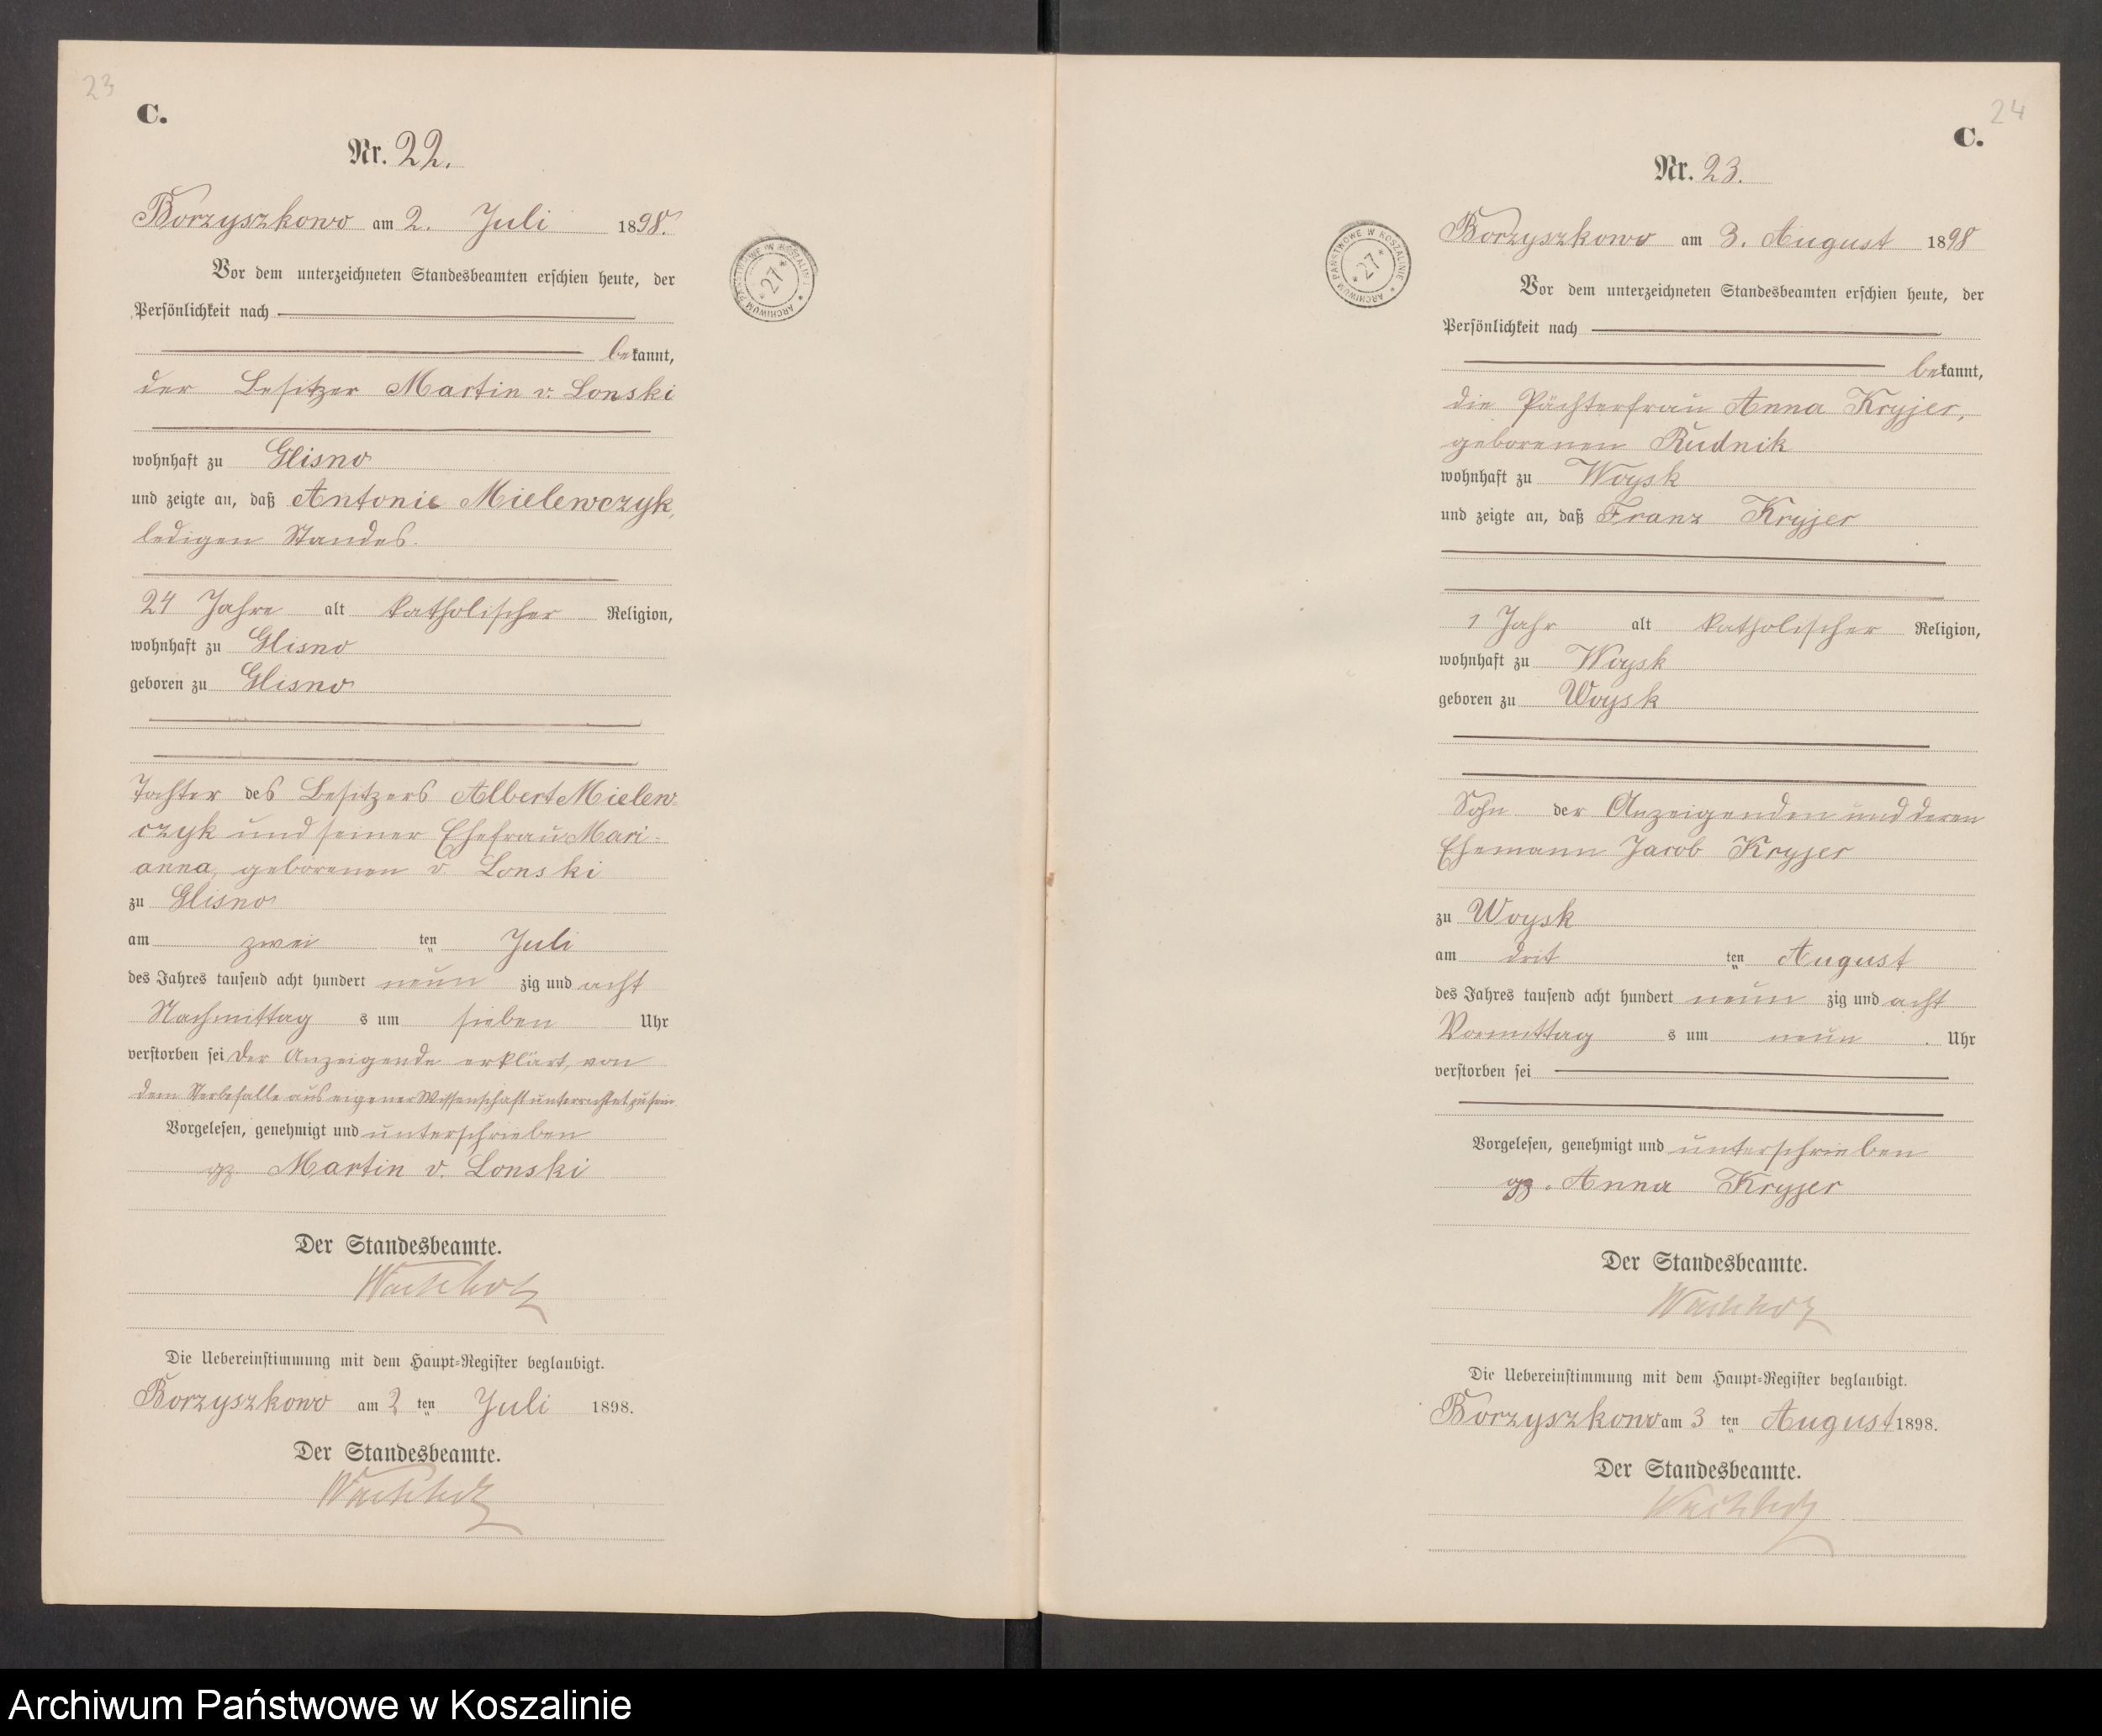 23
C.
Nr. 22.
Borzyszkowo am 2. Juli 1898.
Vor dem unterzeichneten Standesbeamten erschien heute, der
Persönlichkeit nach
bekannt,
der Besitzer Martin v. Lonski
wohnhaft zu Glisno
und zeigte an, daß Antonie Mielewczyk,
ledigen Standes.
24 Jahre alt katholischer Religion,
wohnhaft zu Glisno
geboren zu Glisno
Tochter des Besitzers Albert Mielew-
czyk und seiner Ehefrau Mari-
anna, geborenen v. Lonski
zu Glisno
am zwei ten Juli
des Jahres tausend acht hundert neun zig und acht
Nachmittag s um sieben Uhr
verstorben sei Der Anzeigende erklärt, von
dem Sterbefalle aus eigener Wissenschaft unterrichtet zu sein.
Vorgelesen, genehmigt und unterschrieben
gz. Martin v. Lonski
Der Standesbeamte.
Die Uebereinstimmung mit dem Haupt-Register beglaubigt.
Borzyszkowo am 2 ten Juli 1898.
Der Standesbeamte.
ARCHIWUM PAŃSTWOWE W KOSZALINIE
* 27 *
24
C.
Nr. 23.
Borzyszkowo am 3. August 1898
Vor dem unterzeichneten Standesbeamten erschien heute, der
Persönlichkeit nach
bekannt,
die Pächterfrau Anna Kryjer,
geborenen Rudnik
wohnhaft zu Woysk
und zeigte an, daß Franz Kryjer
1 Jahr alt katholischer Religion,
wohnhaft zu Woysk
geboren zu Woysk
Sohn der Anzeigenden und deren
Ehemann Jacob Kryjer
zu Woysk
am drit ten August
des Jahres tausend acht hundert neun zig und acht
Vormittag s um neun Uhr
verstorben sei
Vorgelesen, genehmigt und unterschrieben
gz. Anna Kryjer
Der Standesbeamte.
Die Uebereinstimmung mit dem Haupt-Register beglaubigt.
Borzyszkowo am 3 ten August 1898.
Der Standesbeamte.
ARCHIWUM PAŃSTWOWE W KOSZALINIE
* 27 *
Archiwum Państwowe w Koszalinie